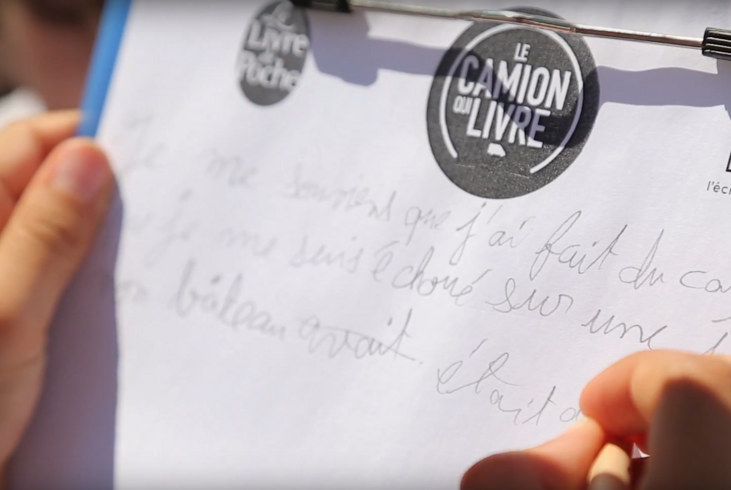 Le
Livre
de
Poche
LE
CAMION
QUI LIVRE
l'écr
Je me souviens que j'ai fait du ca
je me suis échoué sur une
bâteau avait. était